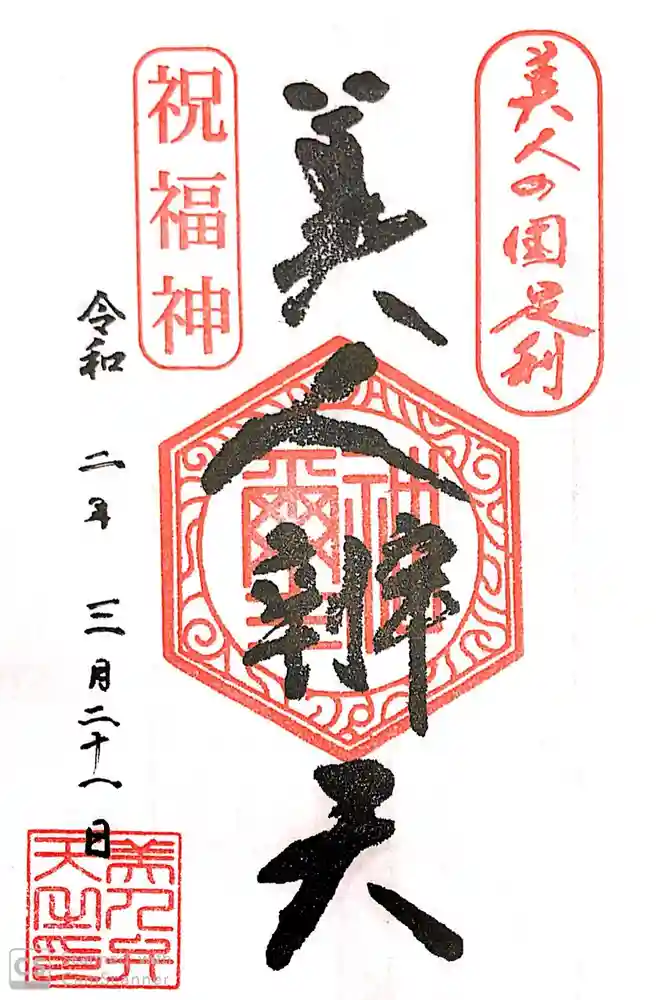 美人の国足利
美人辨天
神璽
祝福神
令和 二年 三月二十八日
美人弁
天之印
CS
CamScanner